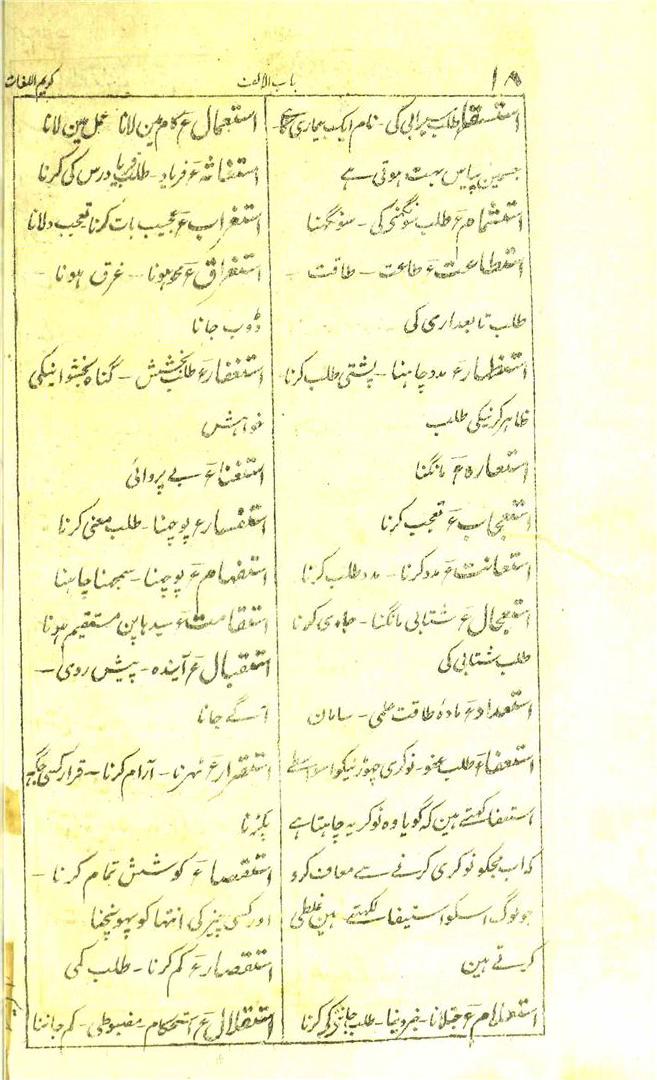 ۱۸
باب الالف
کریم اللغات
استسقا ع طلب سیرابی کی - نام ایک بیماری کا -
جسمین پیاس بہت ہوتی ہے
استشمام ع طلب سونگھنے کی - سونگھنا
استطاعت ع طاعت - طاقت -
طلب تابعداری کی
استظہار ع مدد چاہنا - پشتی طلب کرنا
ظاہر کرنیکی طلب
استعارہ ع مانگنا
استعجاب ع تعجب کرنا
استعانت ع مدد کرنا - مدد طلب کرنا
استعجال ع شتابی مانگنا - جلدی کرنا
طلب شتابی کی
استعداد ع مادۂ طاقت علمی - سامان
استعفا ع طلب عفو - نوکری چھوڑنیکو اسواسطے
استعفا کہتے ہین کہ گویا وہ نوکر یہ چاہتا ہے
کہ اب مجکو نوکری کرنے سے معاف کرو
جو لوگ اسکو استیفا لکھتے ہین غلطی
کرتے ہین
استعلام ع جتلانا - خبر دینا - طلب جاننے کی کرنا
استعمال ع کام مین لانا عمل مین لانا
استغاثہ ع فریاد - طلب فریادرس کی کرنا
استغراب ع عجیب بات کرنا تعجب دلانا
استغراق ع محو ہونا - غرق ہونا -
ڈوب جانا
استغفار ع طلب بخشش - گناہ بخشوانیکی
خواہش
استغنا ع بے پروائی
استفسار ع پوچھنا - طلب معنی کرنا
استفہام ع پوچھنا - سمجھنا چاہنا
استقامت ع سیدہاپن مستقیم ہونا
استقبال ع آیندہ - پیش روی -
آگے جانا
استقرار ع ٹہرنا - آرام کرنا - قرار کسی جگہ
پکڑنا
استقصا ع کوشش تمام کرنا -
اور کسی چیز کی انتہا کو پہونچنا
استقصار ع کم کرنا - طلب کمی
استقلال ع استحکام مضبوطی - کم جاننا